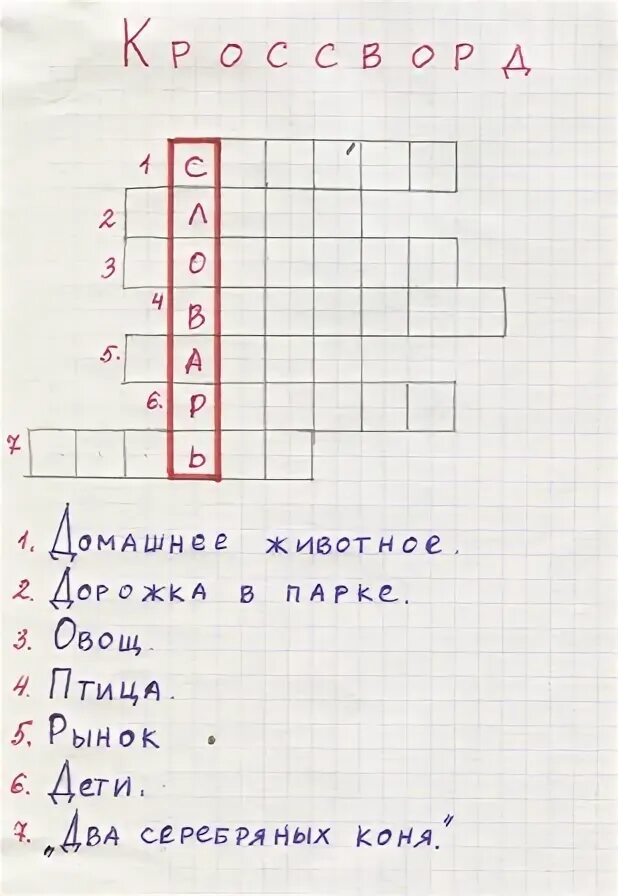 Кроссворд
1 С
2 Л
3 О
4 В
5. А
6. Р
7 Ь
1. Домашнее животное.
2. Дорожка в парке.
3. Овощ.
4. Птица.
5. Рынок
6. Дети.
7. „Два серебряных коня."